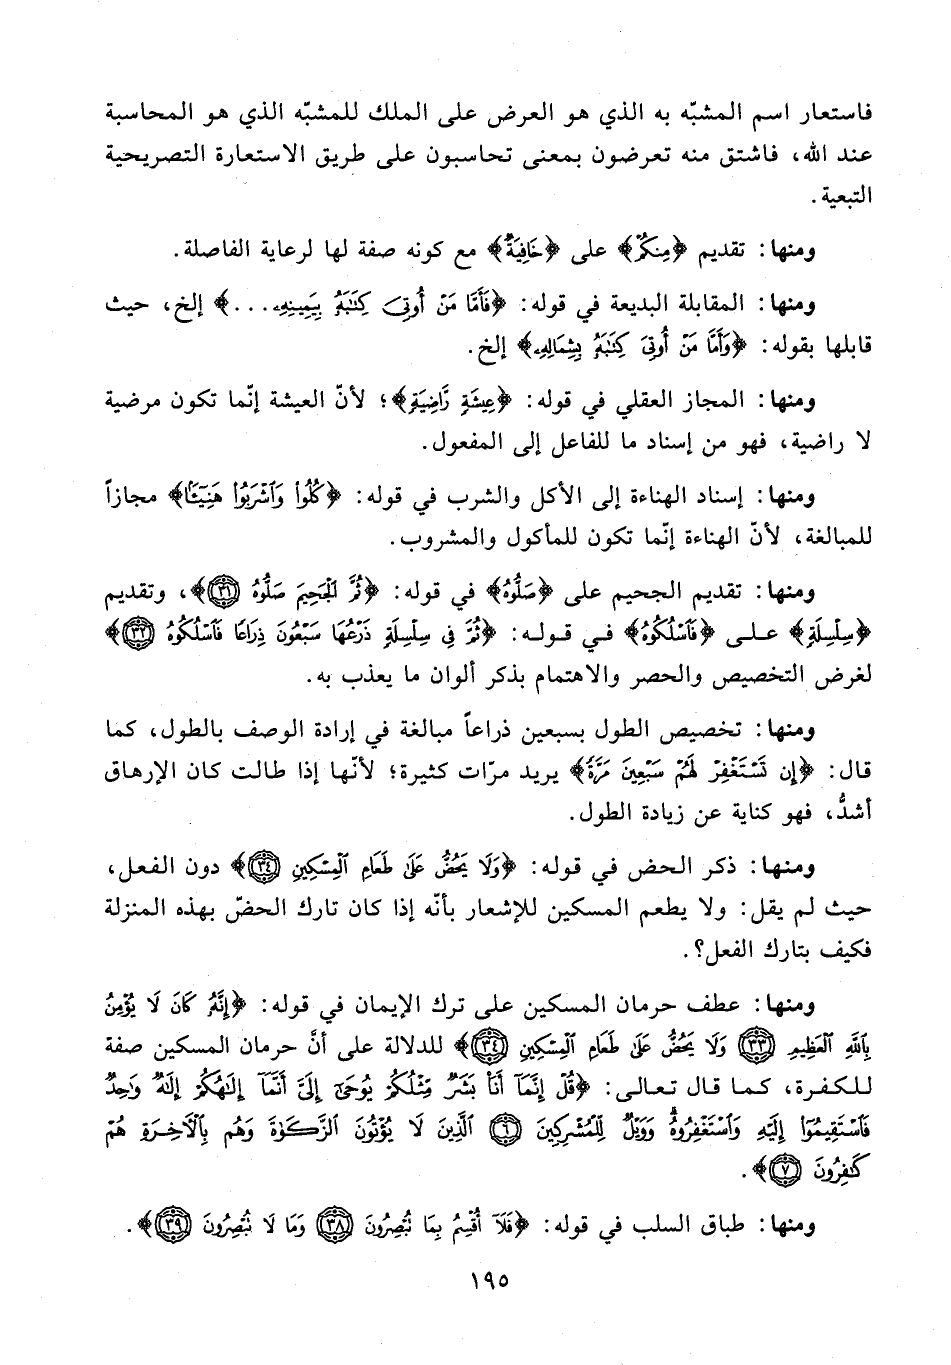 فاستعار اسم المشبّه به الذي هو العرض على الملك للمشبّه الذي هو المحاسبة
عند الله، فاشتق منه تعرضون بمعنى تحاسبون على طريق الاستعارة التصريحية
التبعية.
ومنها: تقديم ﴿مِنكُمْ﴾ على ﴿خَافِيَةٌ﴾ مع كونه صفة لها لرعاية الفاصلة.
ومنها: المقابلة البديعة في قوله: ﴿فَأَمَّا مَنْ أُوتِىَ كِتَٰبَهُۥ بِيَمِينِهِۦ...﴾ إلخ، حيث
قابلها بقوله: ﴿وَأَمَّا مَنْ أُوتِىَ كِتَٰبَهُۥ بِشِمَالِهِۦ﴾ إلخ.
ومنها: المجاز العقلي في قوله: ﴿عِيشَةٍ رَّاضِيَةٍ﴾؛ لأنّ العيشة إنّما تكون مرضية
لا راضية، فهو من إسناد ما للفاعل إلى المفعول.
ومنها: إسناد الهناءة إلى الأكل والشرب في قوله: ﴿كُلُوا۟ وَٱشْرَبُوا۟ هَنِيٓـًٔۢا﴾ مجازاً
للمبالغة، لأنّ الهناءة إنّما تكون للمأكول والمشروب.
ومنها: تقديم الجحيم على ﴿صَلُّوهُ﴾ في قوله: ﴿ثُمَّ ٱلْجَحِيمَ صَلُّوهُ ٣١﴾، وتقديم
﴿سِلْسِلَةٍ﴾ على ﴿فَٱسْلُكُوهُ﴾ في قوله: ﴿ثُمَّ فِى سِلْسِلَةٍ ذَرْعُهَا سَبْعُونَ ذِرَاعًا فَٱسْلُكُوهُ ٣٢﴾
لغرض التخصيص والحصر والاهتمام بذكر ألوان ما يعذب به.
ومنها: تخصيص الطول بسبعين ذراعاً مبالغة في إرادة الوصف بالطول، كما
قال: ﴿إِن تَسْتَغْفِرْ لَهُمْ سَبْعِينَ مَرَّةً﴾ يريد مرّات كثيرة؛ لأنّها إذا طالت كان الإرهاق
أشدُّ، فهو كناية عن زيادة الطول.
ومنها: ذكر الحض في قوله: ﴿وَلَا يَحُضُّ عَلَىٰ طَعَامِ ٱلْمِسْكِينِ ٣٤﴾ دون الفعل،
حيث لم يقل: ولا يطعم المسكين للإشعار بأنّه إذا كان تارك الحضّ بهذه المنزلة
فكيف بتارك الفعل؟.
ومنها: عطف حرمان المسكين على ترك الإيمان في قوله: ﴿إِنَّهُۥ كَانَ لَا يُؤْمِنُ
بِٱللَّهِ ٱلْعَظِيمِ ٣٣ وَلَا يَحُضُّ عَلَىٰ طَعَامِ ٱلْمِسْكِينِ ٣٤﴾ للدلالة على أنَّ حرمان المسكين صفة
للكفرة، كما قال تعالى: ﴿قُلْ إِنَّمَآ أَنَا۠ بَشَرٌ مِّثْلُكُمْ يُوحَىٰٓ إِلَىَّ أَنَّمَآ إِلَٰهُكُمْ إِلَٰهٌ وَٰحِدٌ
فَٱسْتَقِيمُوٓا۟ إِلَيْهِ وَٱسْتَغْفِرُوهُ وَوَيْلٌ لِّلْمُشْرِكِينَ ٦ ٱلَّذِينَ لَا يُؤْتُونَ ٱلزَّكَوٰةَ وَهُم بِٱلْءَاخِرَةِ هُمْ
كَٰفِرُونَ ٧﴾.
ومنها: طباق السلب في قوله: ﴿فَلَآ أُقْسِمُ بِمَا تُبْصِرُونَ ٣٨ وَمَا لَا تُبْصِرُونَ ٣٩﴾.
١٩٥